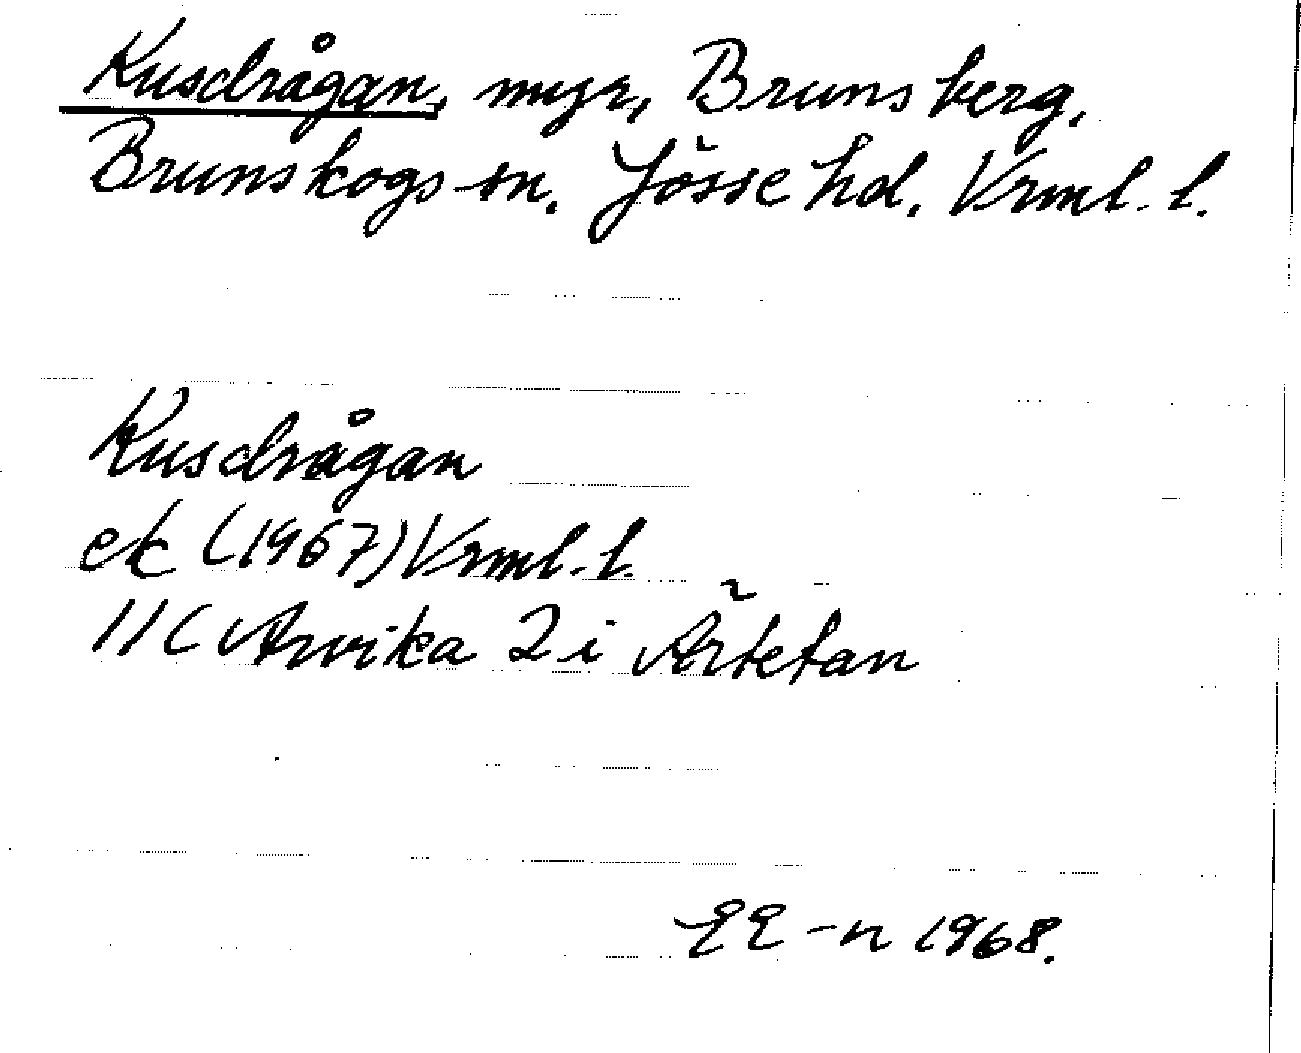 Kusdrågan, myr, Brunsberg,
Brunskogs sn. Jösse hd. Vrml. l.
Kusdrågan
ek (1967) Vrml. l.
11C Arvika 2i Ärtetan
EE-n 1968.